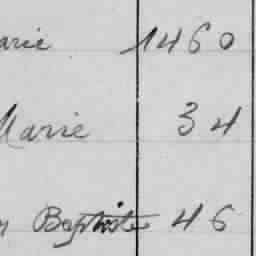 arie 1460
Marie 34
n Baptiste 46